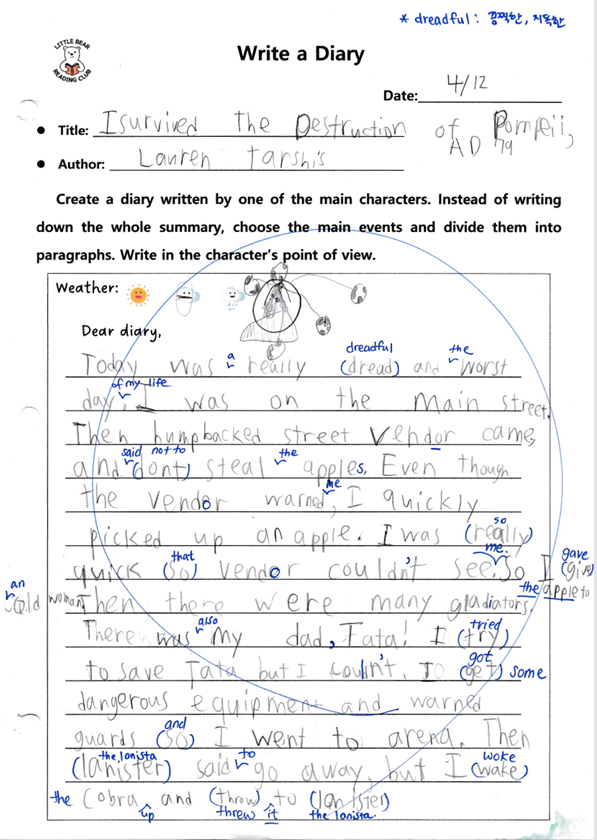 * dreadful : 끔찍한, 지독한
LITTLE BEAR
READING CLUB
Write a Diary
Date: 4/12
● Title: I survived The Destruction of Pompeii,
AD 79
● Author: Lauren Tarshis
Create a diary written by one of the main characters. Instead of writing
down the whole summary, choose the main events and divide them into
paragraphs. Write in the character's point of view.
Weather:
Dear diary,
a dreadful the
Today was really (dread) and worst
of my life
day, I was on the main street.
Then humpbacked street vendor came,
said not to the
and (dont) steal apples. Even though
me
the vendor warned, I quickly
so
picked up an apple. I was (really)
that me. gave
quick (so) vendor couldn't see. So I (give)
an the apple to
old woman. Then there were many gladiators.
also tried
There was my dad, Tata! I (try)
got
to save Tata but I couldn't. I (get) some
dangerous equipment and warned
and
guards (so) I went to arena. Then
the lanista to woke
(lanister) said go away, but I (wake)
the cobra up and (throw) to (lanister)
threw it the lanista.